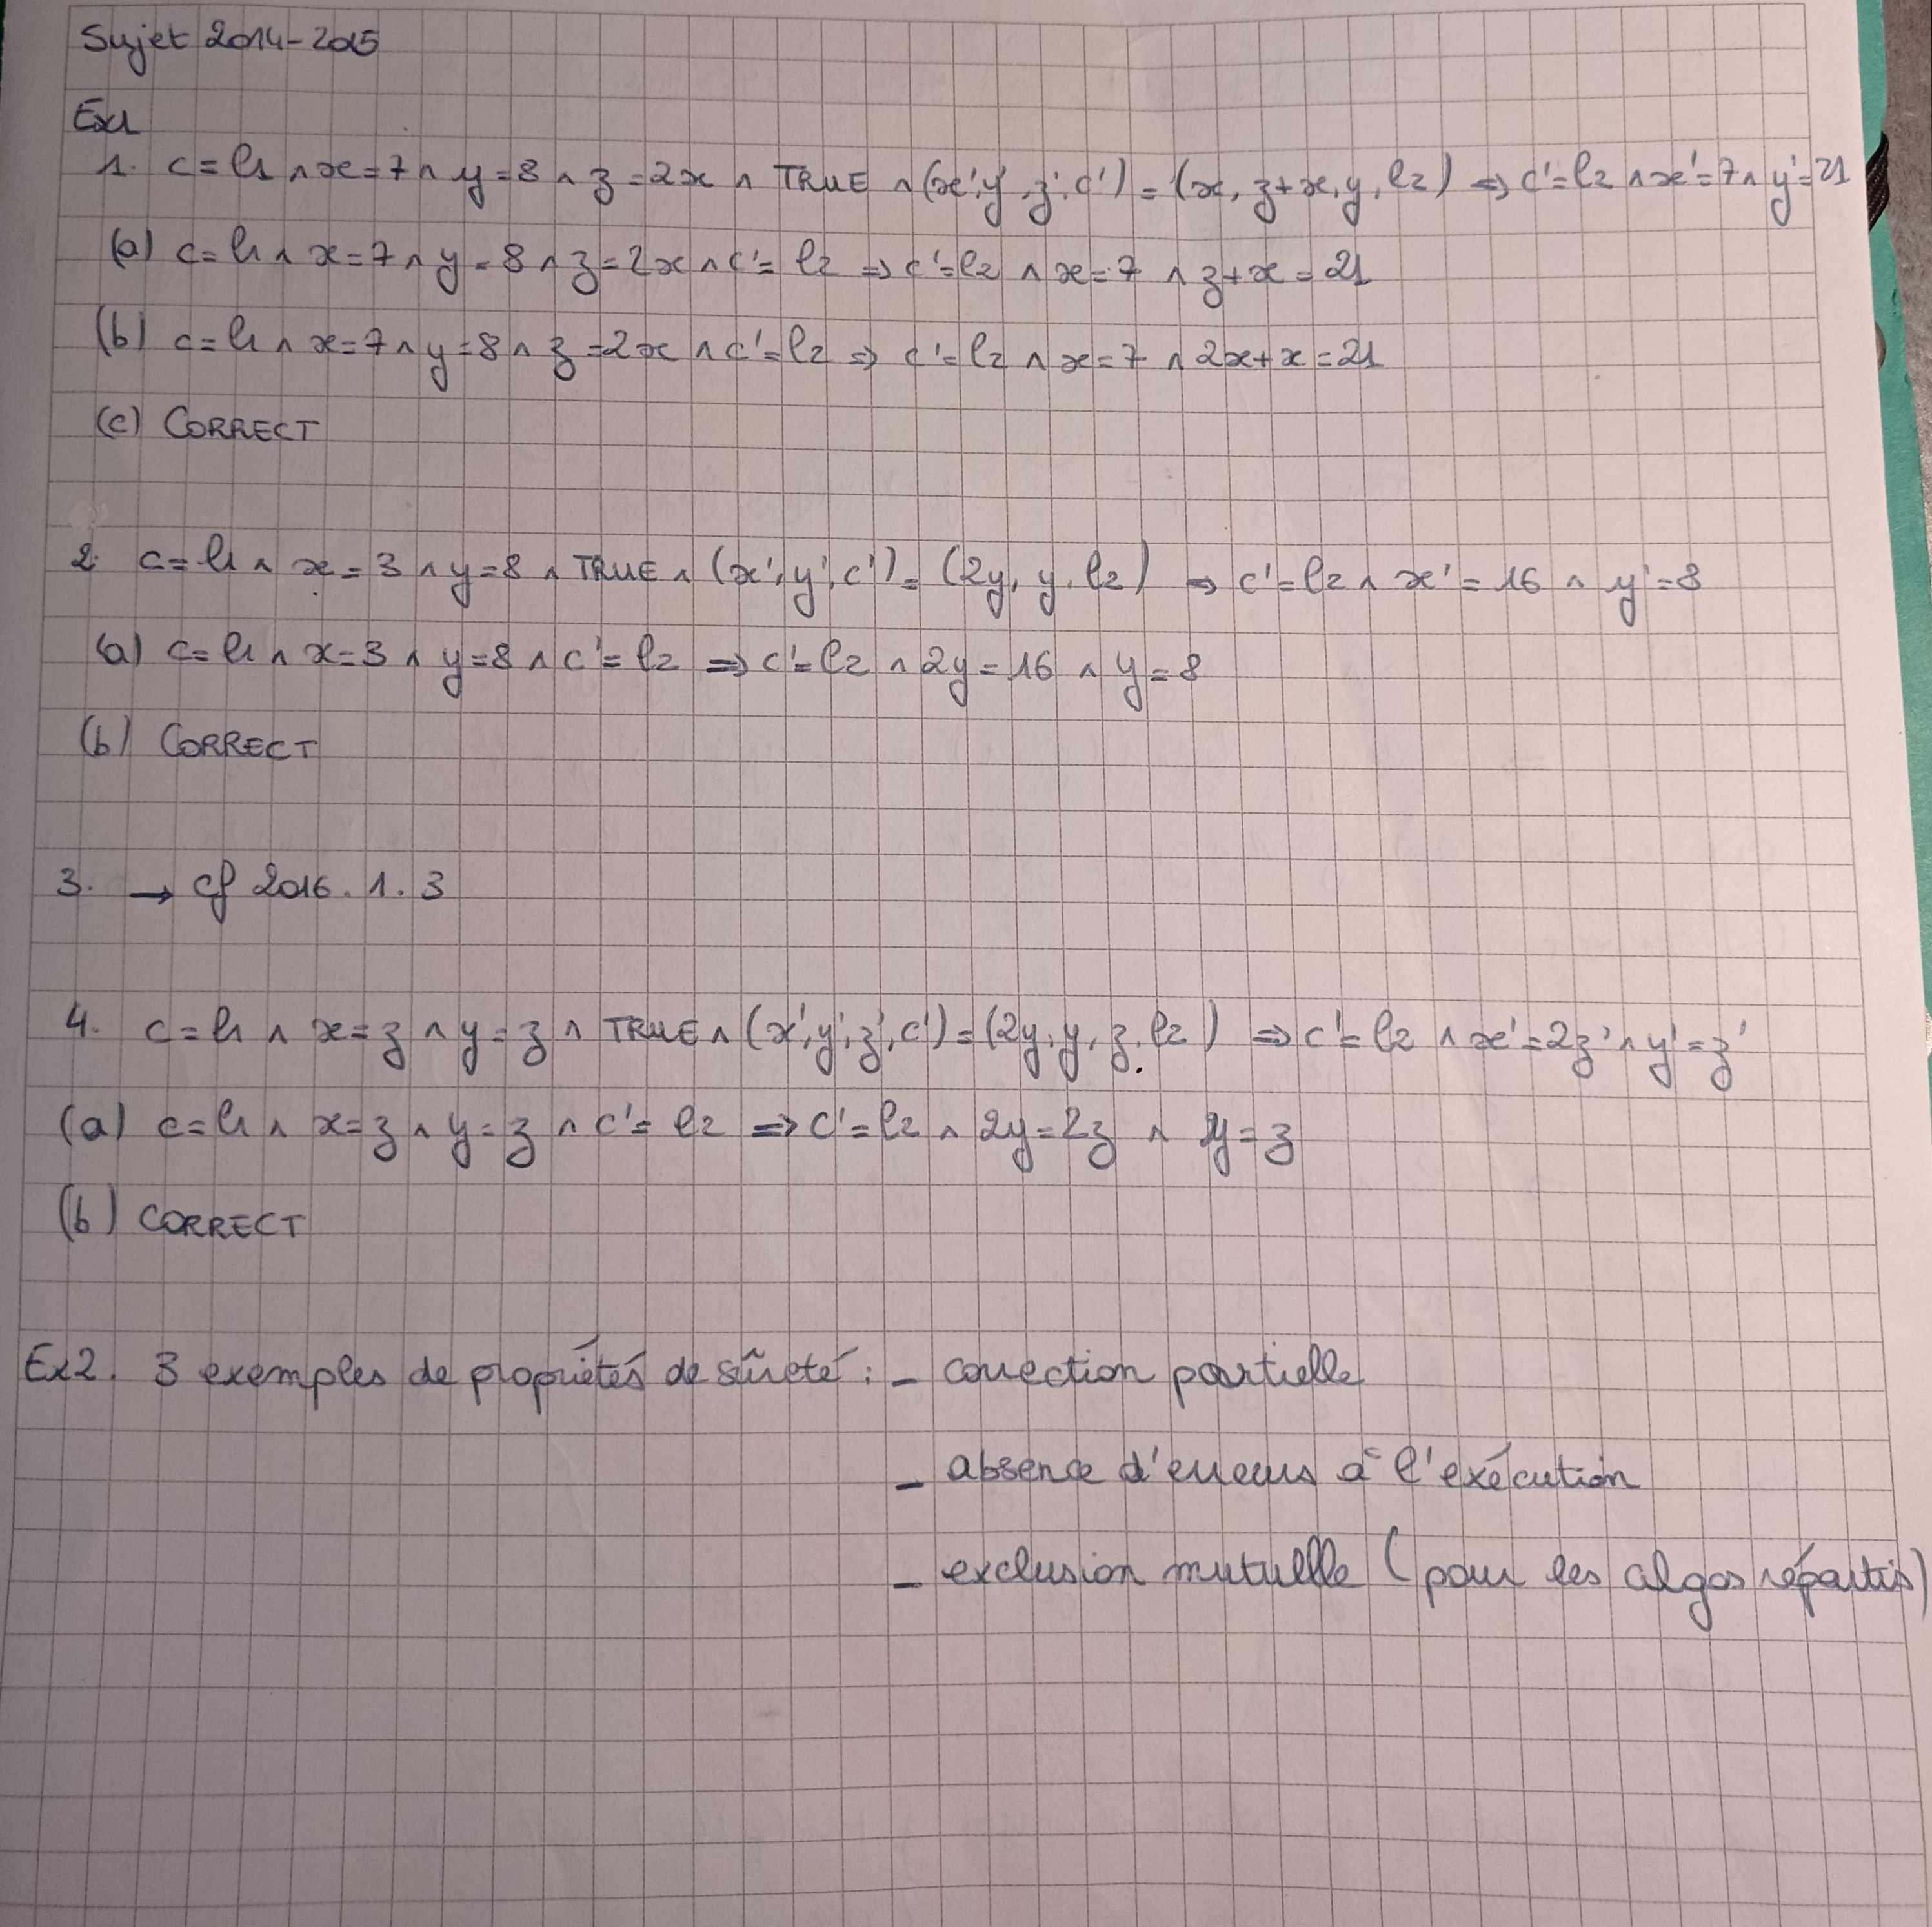 Sujet 2014-2015
Ex1
1. c = l1 ∧ x = 7 ∧ y = 8 ∧ z = 2x ∧ TRUE ∧ (x', y', z', c') = (x, z+x, y, l2) ⇒ c' = l2 ∧ x' = 7 ∧ y' = 21
(a) c = l1 ∧ x = 7 ∧ y = 8 ∧ z = 2x ∧ c' = l2 ⇒ c' = l2 ∧ x = 7 ∧ z+x = 21
(b) c = l1 ∧ x = 7 ∧ y = 8 ∧ z = 2x ∧ c' = l2 ⇒ c' = l2 ∧ x = 7 ∧ 2x+x = 21
(c) CORRECT
2. c = l1 ∧ x = 3 ∧ y = 8 ∧ TRUE ∧ (x', y', c') = (2y, y, l2) ⇒ c' = l2 ∧ x' = 16 ∧ y' = 8
(a) c = l1 ∧ x = 3 ∧ y = 8 ∧ c' = l2 ⇒ c' = l2 ∧ 2y = 16 ∧ y = 8
(b) CORRECT
3. → cf 2016. 1. 3
4. c = l1 ∧ x = z ∧ y = z ∧ TRUE ∧ (x', y', z', c') = (2y, y, z, l2) ⇒ c' = l2 ∧ x' = 2z' ∧ y' = z'
(a) c = l1 ∧ x = z ∧ y = z ∧ c' = l2 ⇒ c' = l2 ∧ 2y = 2z ∧ y = z
(b) CORRECT
Ex2. 3 exemples de propriétés de sûreté : - correction partielle
- absence d'erreurs à l'exécution
- exclusion mutuelle (pour les algos répartis)